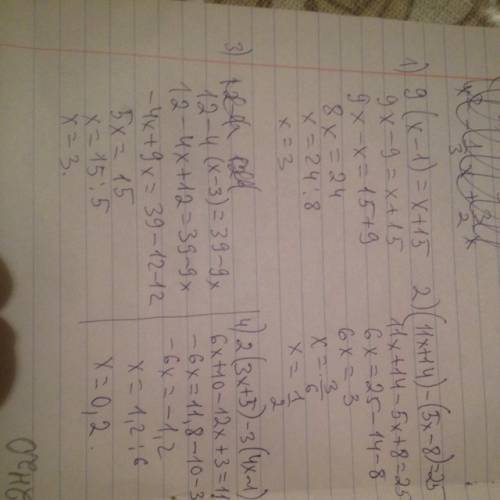 1) 9(x-1)=x+15
9x-9=x+15
9x-x=15+9
8x=24
x=24:8
x=3
2) (11x+14)-(5x-8)=25
11x+14-5x+8=25
6x=25-14-8
6x=3
x=3/6
x=1/2
3)
12-4(x-3)=39-9x
12-4x+12=39-9x
-4x+9x=39-12-12
5x=15
x=15:5
x=3.
4) 2(3x+5)-3(4x-1)
6x+10-12x+3=11
-6x=11,8-10-3
-6x=-1,2
x=1,2:6
x=0,2.